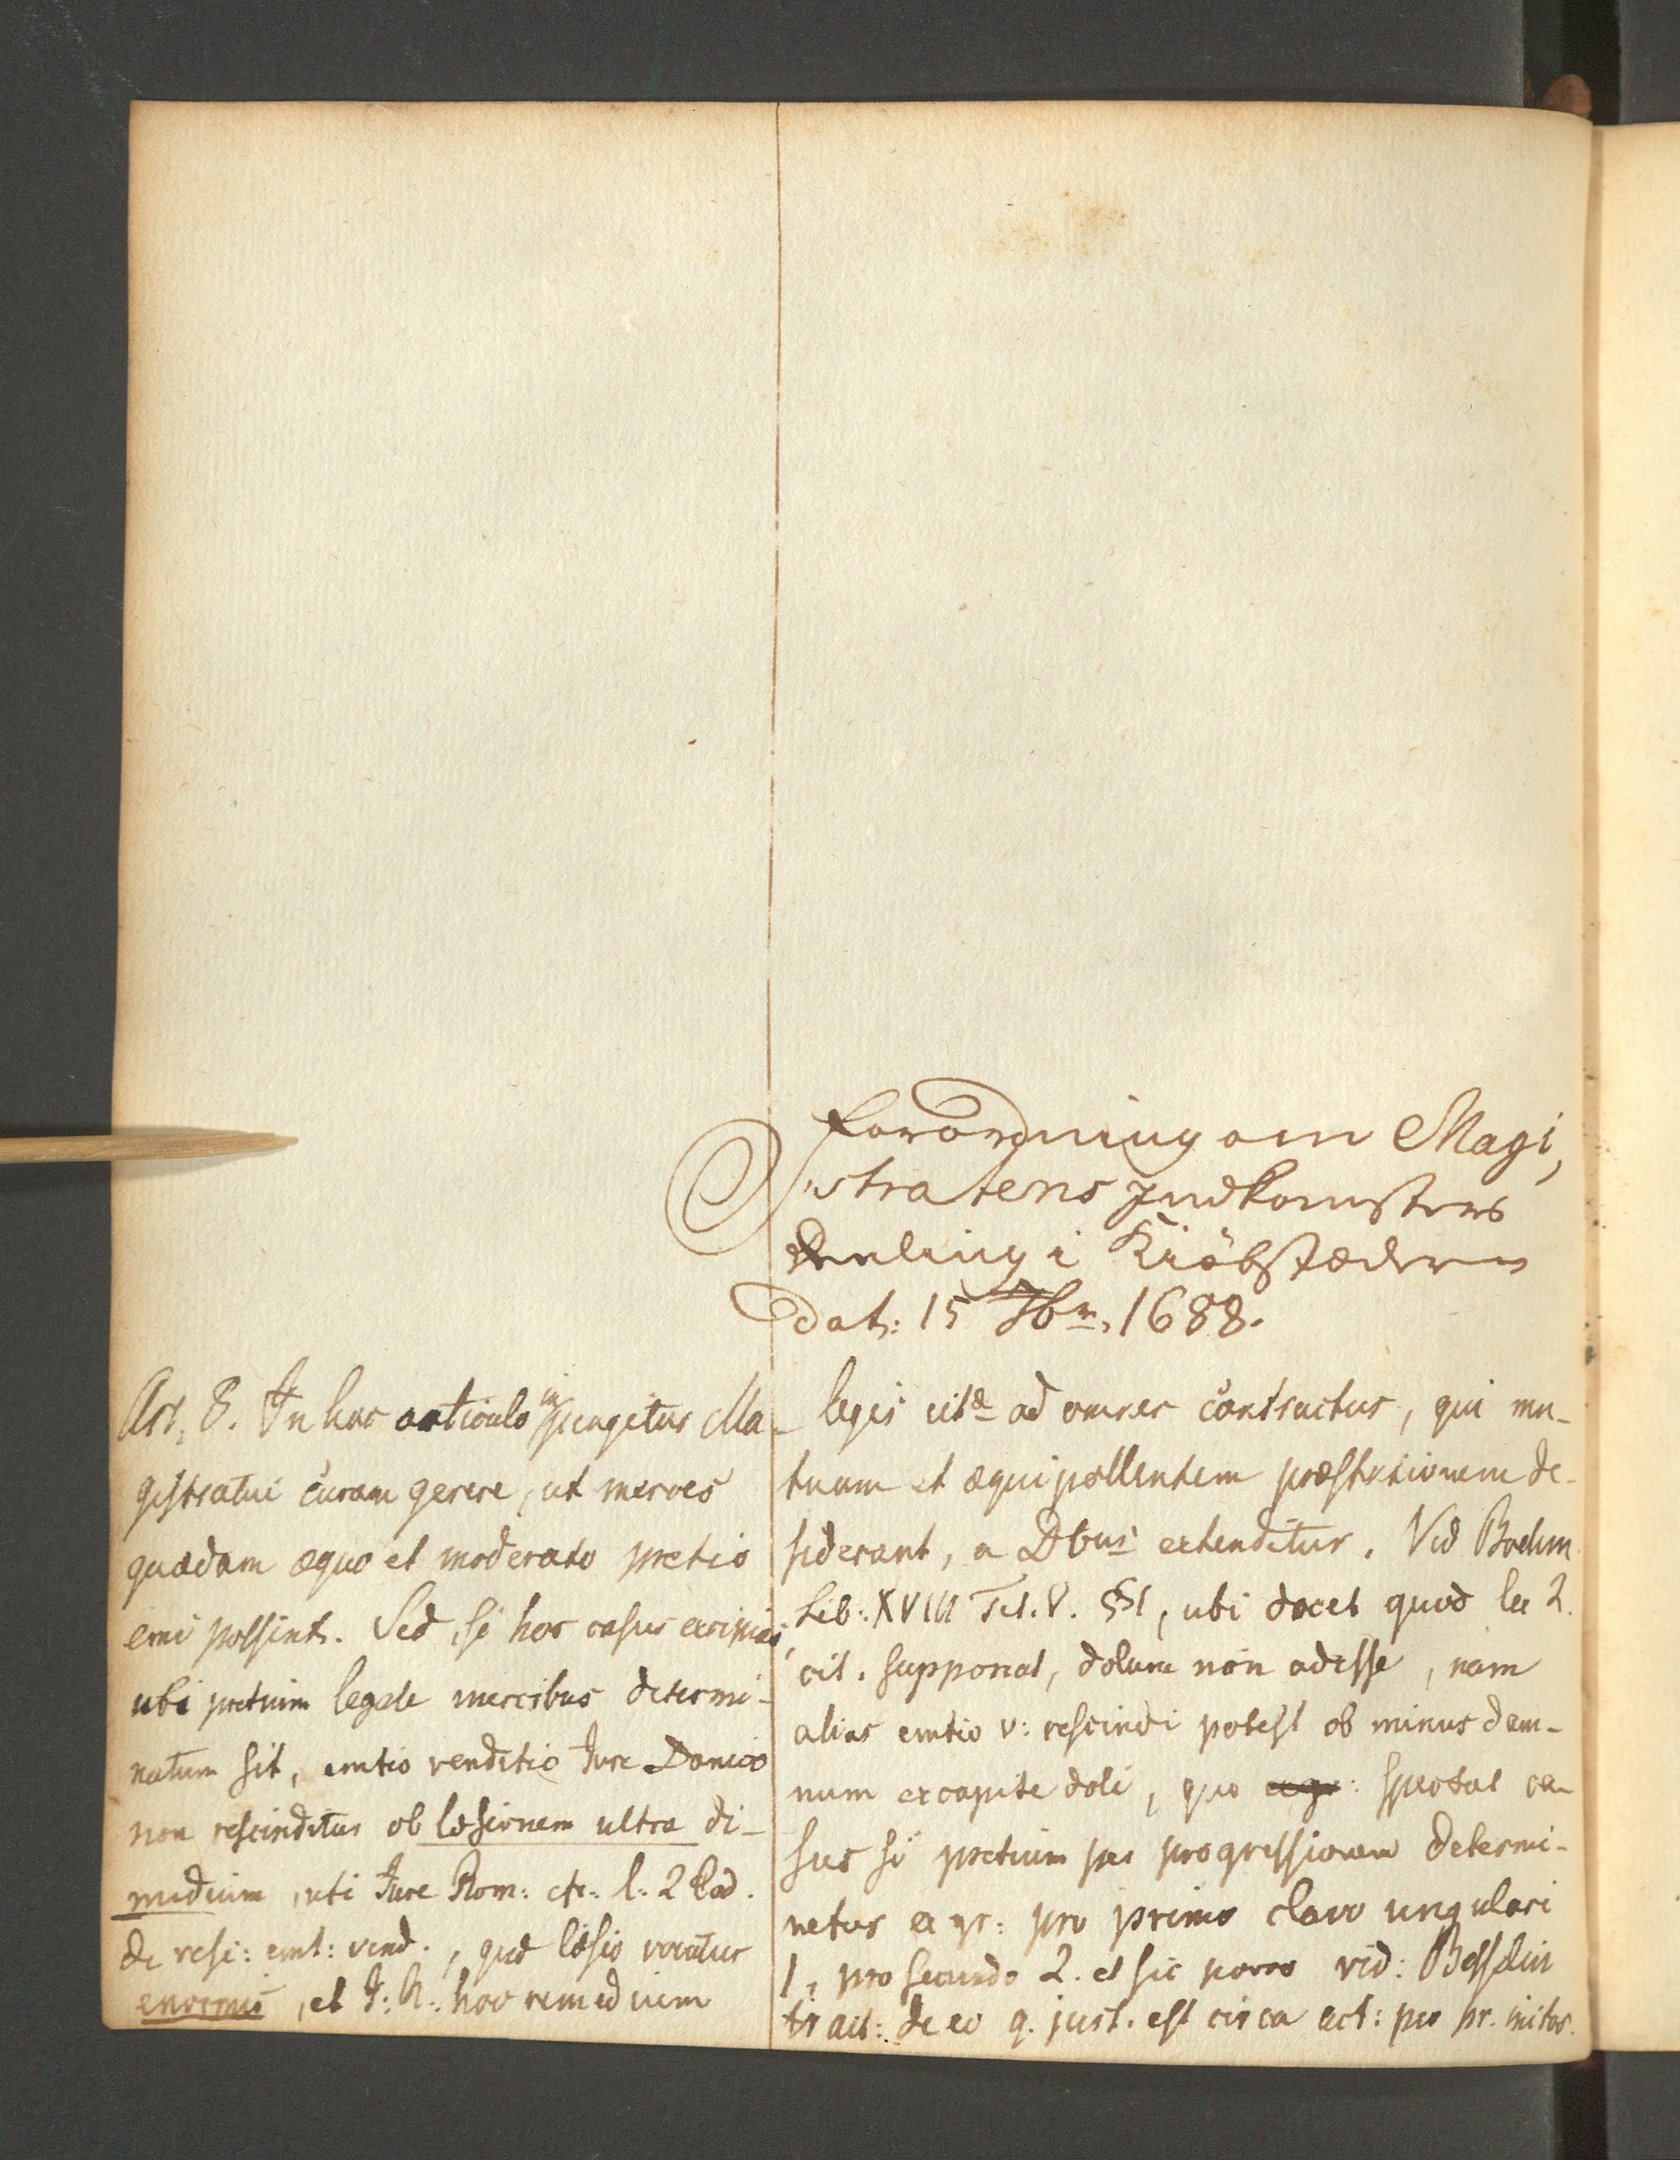 forordning om Magi,
stratens Indkomsters
deeling i Kiöbstæderne
dat: 15 Xbr. 1688.
Art. 8. In hoc articulo injungitur Ma-
gistratui curam gerere, ut merces
quædam æquo et moderato pretio
emi possint. Sed, si hos casus excipias,
ubi pretium legale mercibus determi-
natum sit, emtio venditio Jure Danico
non rescinditur ob læsionem ultra di-
midium, uti Jure Rom: l: 2 Cod.
de resc: emt: vend., quæ læsio vocatur
enormis, et J: R: hoc remedium
legis citæ ad omnes contractus, qui mu-
tuam et æquipollentem præstationem de-
siderant, a DDbus extenditur. Vid Boehm
Lib: XVIII Tit. V. §1, ubi docet quod lex 2.
cit. supponat, dolum non adesse, nam
alias emtio v: rescindi potest ob minus dam-
num ex capite doli, quo spectat ca-
sus si pretium per progressionem determi-
netur ex gr: pro primo clavo ungulari
1, pro secundo 2. et sic porro vid:
tract: de eo q. just. est circa act: per pr. initos.